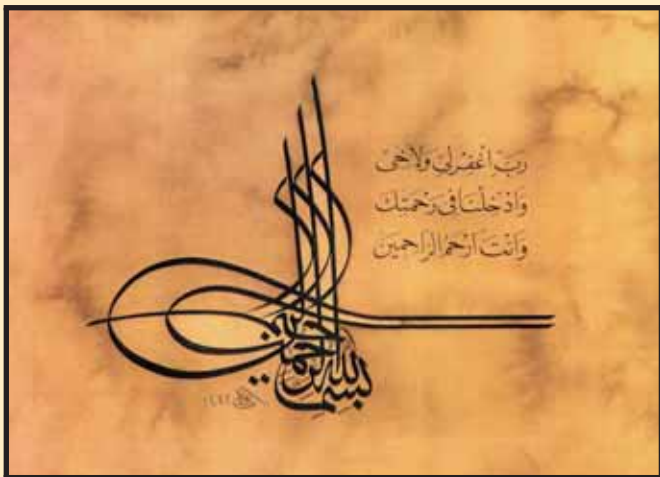 رَبِّ اغْفِرْلِي وَلِأَخِي
وَاَدْخِلْنَا فِي رَحْمَتِكَ
وَاَنْتَ اَرْحَمُ الرَّاحِمِينَ
بسم الله الرحمن الرحيم